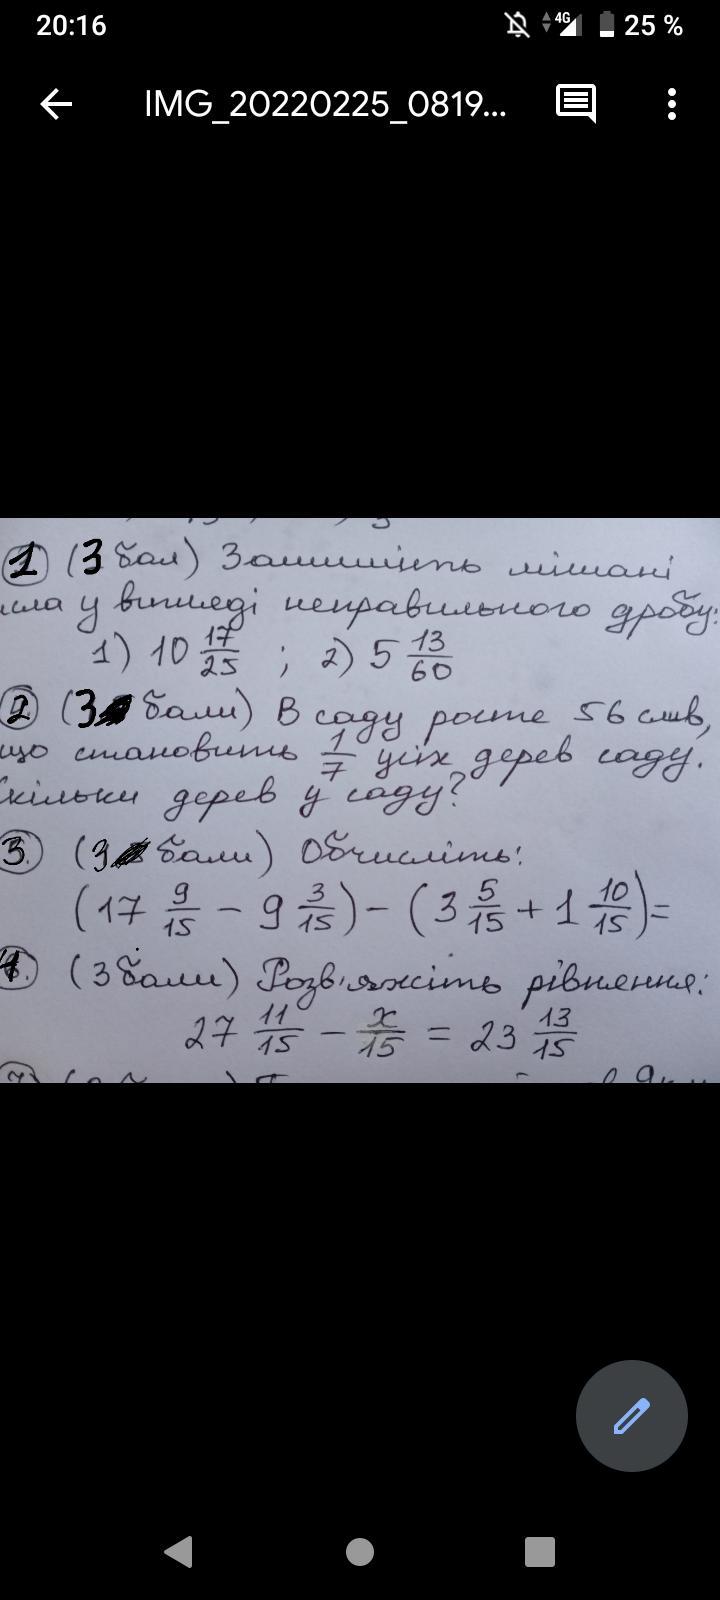 20:16
4G 25 %
IMG_20220225_0819...
1 (3 бал) Запишіть мішані
исла у вигляді неправильного дробу:
1) 10 17/25 ; 2) 5 13/60
2 (3 бали) В саду росте 56 слив,
що становить 1/7 усіх дерев саду.
Скільки дерев у саду?
3. (3 бали) Обчисліть:
(17 9/15 - 9 3/15) - (3 5/15 + 1 10/15) =
4. (3 бали) Розв'яжіть рівняння:
27 11/15 - x/15 = 23 13/15